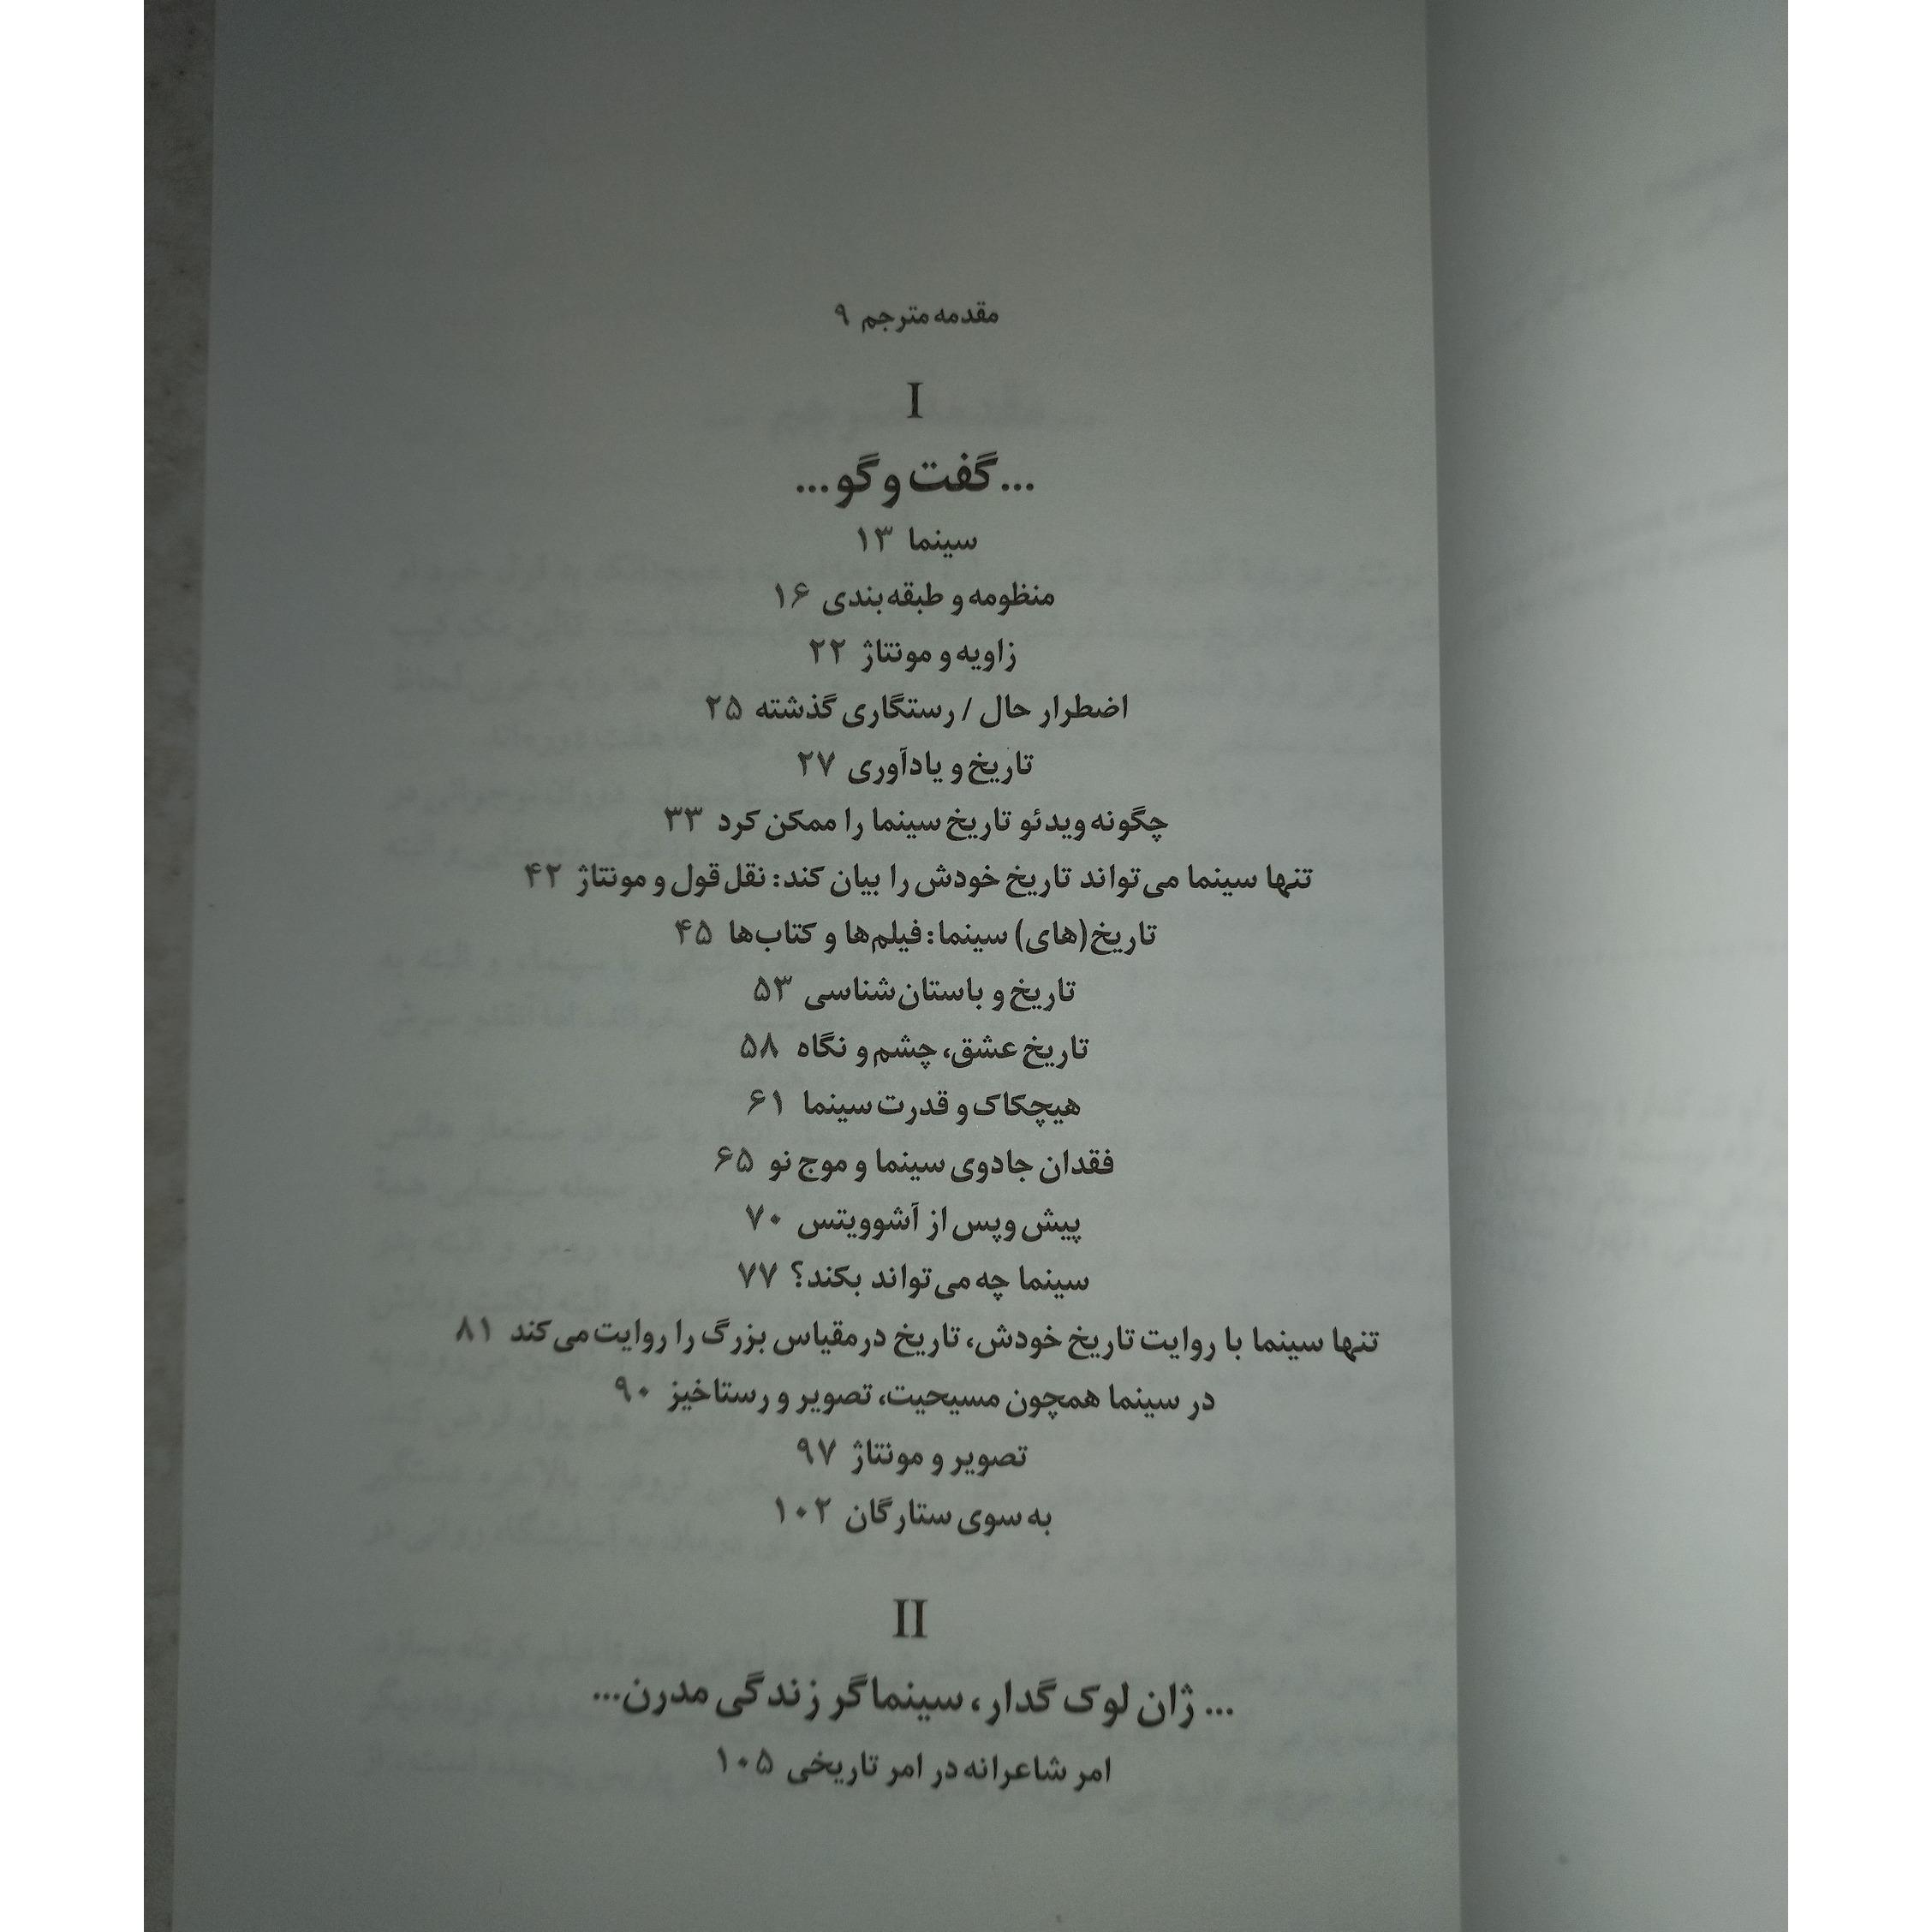 مقدمه مترجم ۹
I
...گفت و گو...
سینما ۱۳
منظومه و طبقه‌بندی ۱۶
زاویه و مونتاژ ۲۲
اضطرار حال / رستگاری گذشته ۲۵
تاریخ و یادآوری ۲۷
چگونه ویدئو تاریخ سینما را ممکن کرد ۳۳
تنها سینما می‌تواند تاریخ خودش را بیان کند: نقل‌قول و مونتاژ ۴۲
تاریخ(های) سینما: فیلم‌ها و کتاب‌ها ۴۵
تاریخ و باستان‌شناسی ۵۳
تاریخ عشق، چشم و نگاه ۵۸
هیچکاک و قدرت سینما ۶۱
فقدان جادوی سینما و موج نو ۶۵
پیش و پس از آشوویتس ۷۰
سینما چه می‌تواند بکند؟ ۷۷
تنها سینما با روایت تاریخ خودش، تاریخ در مقیاس بزرگ را روایت می‌کند ۸۱
در سینما همچون مسیحیت، تصویر و رستاخیز ۹۰
تصویر و مونتاژ ۹۷
به سوی ستارگان ۱۰۲
II
... ژان لوک گدار، سینماگر زندگی مدرن...
امر شاعرانه در امر تاریخی ۱۰۵